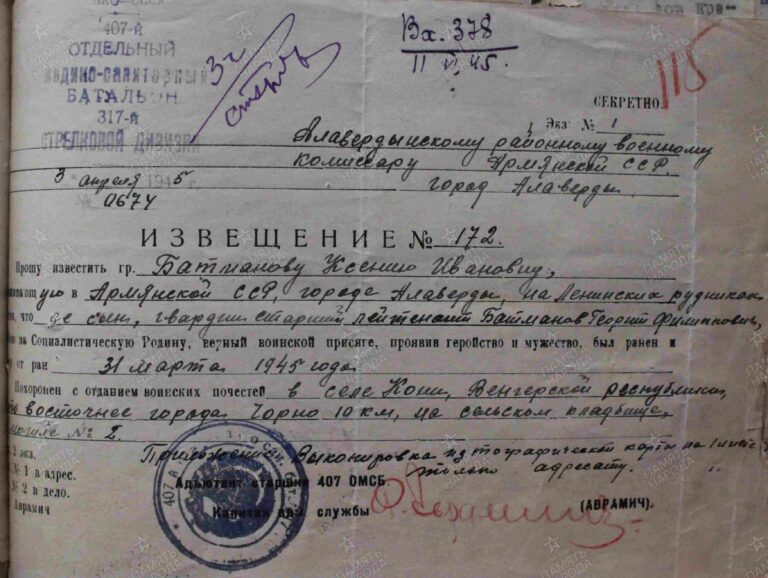 НКО-СССР
407-й
ОТДЕЛЬНЫЙ
МЕДИКО-САНИТАРНЫЙ
БАТАЛЬОН
317-й
СТРЕЛКОВОЙ ДИВИЗИИ
Вх. 378
11 VI 45.
115
СЕКРЕТНО.
Экз. № 1
Алавердынскому районному военному
комиссару Армянской ССР.
3 апреля 1945
город Алаверды
№ 0674
ИЗВЕЩЕНИЕ № 172.
Прошу известить гр. Батманову Ксению Ивановну,
ую в Армянской ССР, городе Алаверды, на Ленинских рудниках
что ее сын, гвардии старший лейтенант Батманов Георгий Филиппович,
за Социалистическую Родину, верный воинской присяге, проявив геройство и мужество, был ранен и
от ран 31 марта 1945 года.
Похоронен с отданием воинских почестей в селе Кони, Венгерской республики,
восточнее города Чорно 10 км, на сельском кладбище,
могиле № 2.
2 экз.
Приложение: Выкопировка из топографической карты на 1 листе
№ 1 в адрес.
только адресату.
№ 2 в дело.
Адъютант старший 407 ОМСБ
Аврамич
Капитан адм службы
(АВРАМИЧ).
ПАМЯТЬ НАРОДА